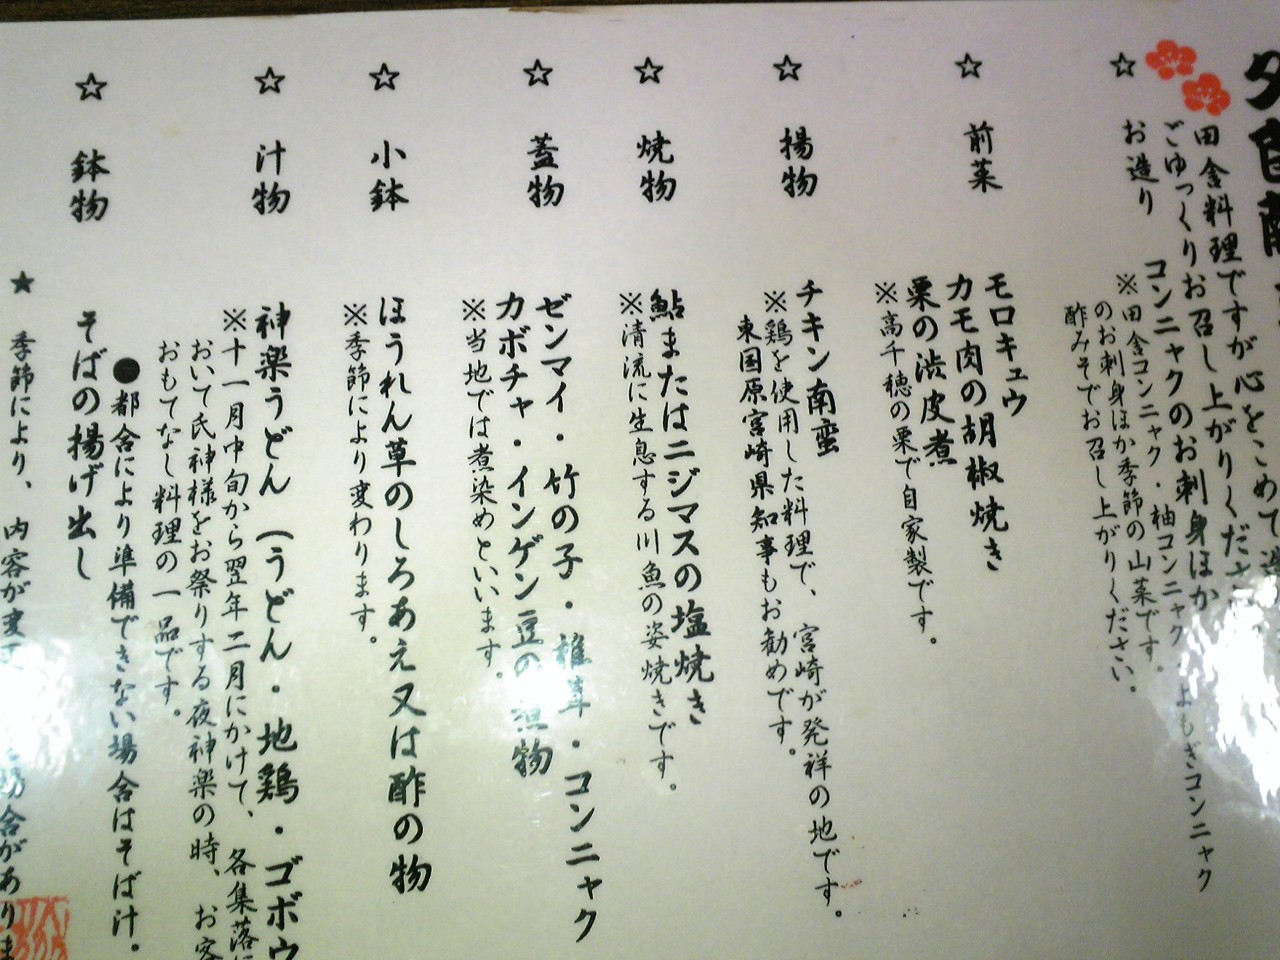 田舎料理ですが心をこめて
ごゆっくりお召し上がりくださ
☆ お造り コンニャクのお刺身ほか
※田舎コンニャク・柚コンニャク よもぎコンニャク
のお刺身ほか季節の山菜です。
酢みそでお召し上がりください。
☆ 前菜 モロキュウ
カモ肉の胡椒焼き
栗の渋皮煮
※高千穂の栗で自家製です。
☆ 揚物 チキン南蛮
※鶏を使用した料理で、宮崎が発祥の地です。
東国原宮崎県知事もお勧めです。
☆ 焼物 鮎またはニジマスの塩焼き
※清流に生息する川魚の姿焼きです。
☆ 蓋物 ゼンマイ・竹の子・椎茸・コンニャク
カボチャ・インゲン豆の煮物
※当地では煮染めといいます。
☆ 小鉢 ほうれん草のしろあえ又は酢の物
※季節により変わります。
☆ 汁物 神楽うどん(うどん・地鶏・ゴボウ
※十一月中旬から翌年二月にかけて、各集落に
おいて氏神様をお祭りする夜神楽の時、お客
おもてなし料理の一品です。
●都合により準備できない場合はそば汁。
☆ 鉢物 そばの揚げ出し
★ 季節により、内容が変 場合があります